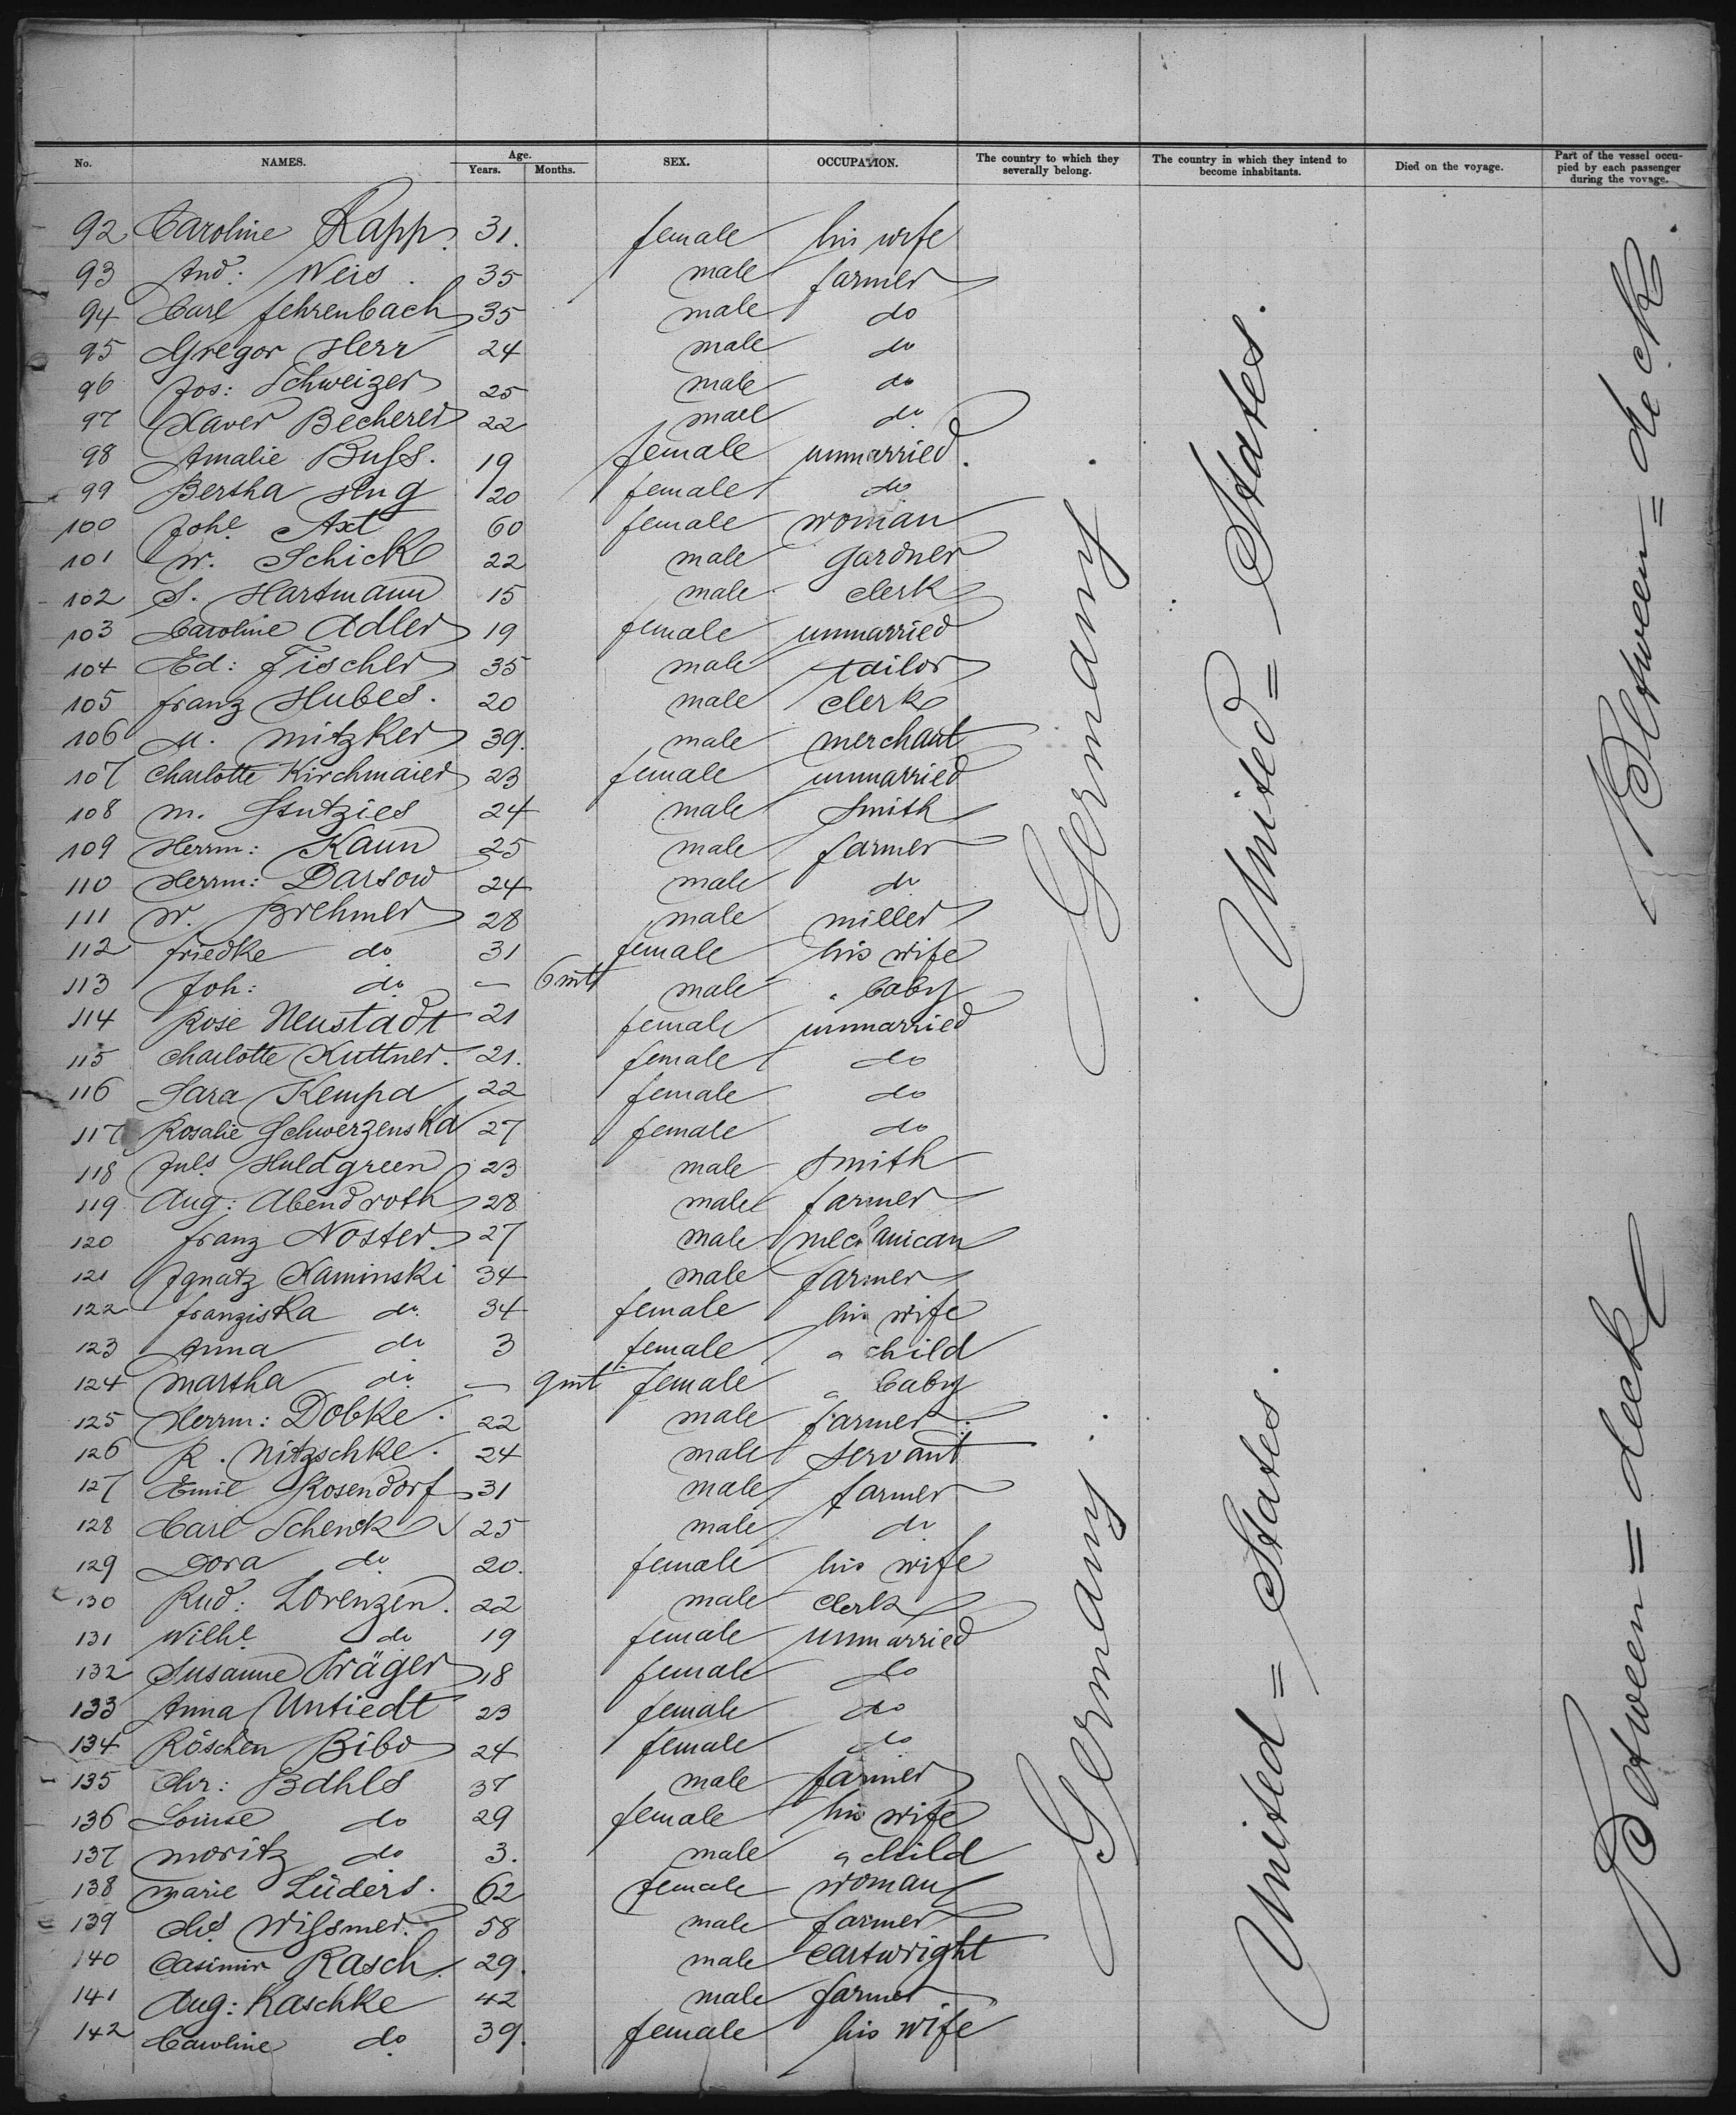 No. NAMES. Age. Years. Months. SEX. OCCUPATION. The country to which they severally belong. The country in which they intend to become inhabitants. Died on the voyage. Part of the vessel occupied by each passenger during the voyage.
92 Caroline Rapp. 31. female his wife
93 And: Weis. 35 male farmer
94 Carl Fehrenbach 35 male do
95 Gregor Herr 24 male do
96 Jos: Schweizer 25 male do
97 Xaver Becherer 22 male do
98 Amalie Buſs. 19 female unmarried.
99 Bertha Hug 20 female do
100 Johe Axt 60 female woman
101 W. Schick 22 male gardner
102 S. Hartmann 15 male clerk
103 Caroline Adler 19 female unmarried
104 Ed: Fischer 35 male tailor
105 Franz Huber. 20 male clerk
106 M. Mitzker 39. male merchant
107 Charlotte Kirchmaier 23 female unmarried
108 M. 24 male Smith
109 Herrm: Kaun 25 male farmer
110 Herrm: Darsow 24 male do
111 W. Brehmer 28 male miller
112 Friedke do 31 female his wife
113 Joh: do — 6 mts male " baby
114 Rose Neustadt 21 female unmarried
115 Charlotte Kuttner. 21. female do
116 Sara Kempa 22 female do
117 Rosalie Schwerzenska 27 female do
118 Juls Huldgreen 23 male Smith
119 Aug: Abendroth 28 male farmer
120 Franz Noster. 27 male mechanican
121 Ignatz Kaminski 34 male farmer
122 Franziska do. 34 female his wife
123 Anna do 3 female a child
124 Martha do — 9 mt female a baby
125 Herrm: Dobke. 22 male farmer.
126 R. Nitzschke. 24 male servant
127 Emil Rosendorf 31 male farmer
128 Carl Schenk 25 male do
129 Dora do 20. female his wife
130 Rud: Lorenzen. 22 male Clerk
131 Wilhe do 19 female unmarried
132 Susanne Träger 18 female do
133 Anna Untiedt 23 female do
134 Röschen Bibo 24 female do
135 Chr: Bahls 37 male farmer
136 Louise do 29 female his wife
137 Moritz do 3. male a child
138 Marie Lüders. 62 female woman
139 Chs. Wiſsmer. 58 male farmer
140 Casimir Rasch. 29. male Cartwright
141 Aug: Raschke 42 male farmer
142 Caroline do 39. female his wife
Germany.
United = States.
Between = deck.
Germany.
United = States.
Between = deck